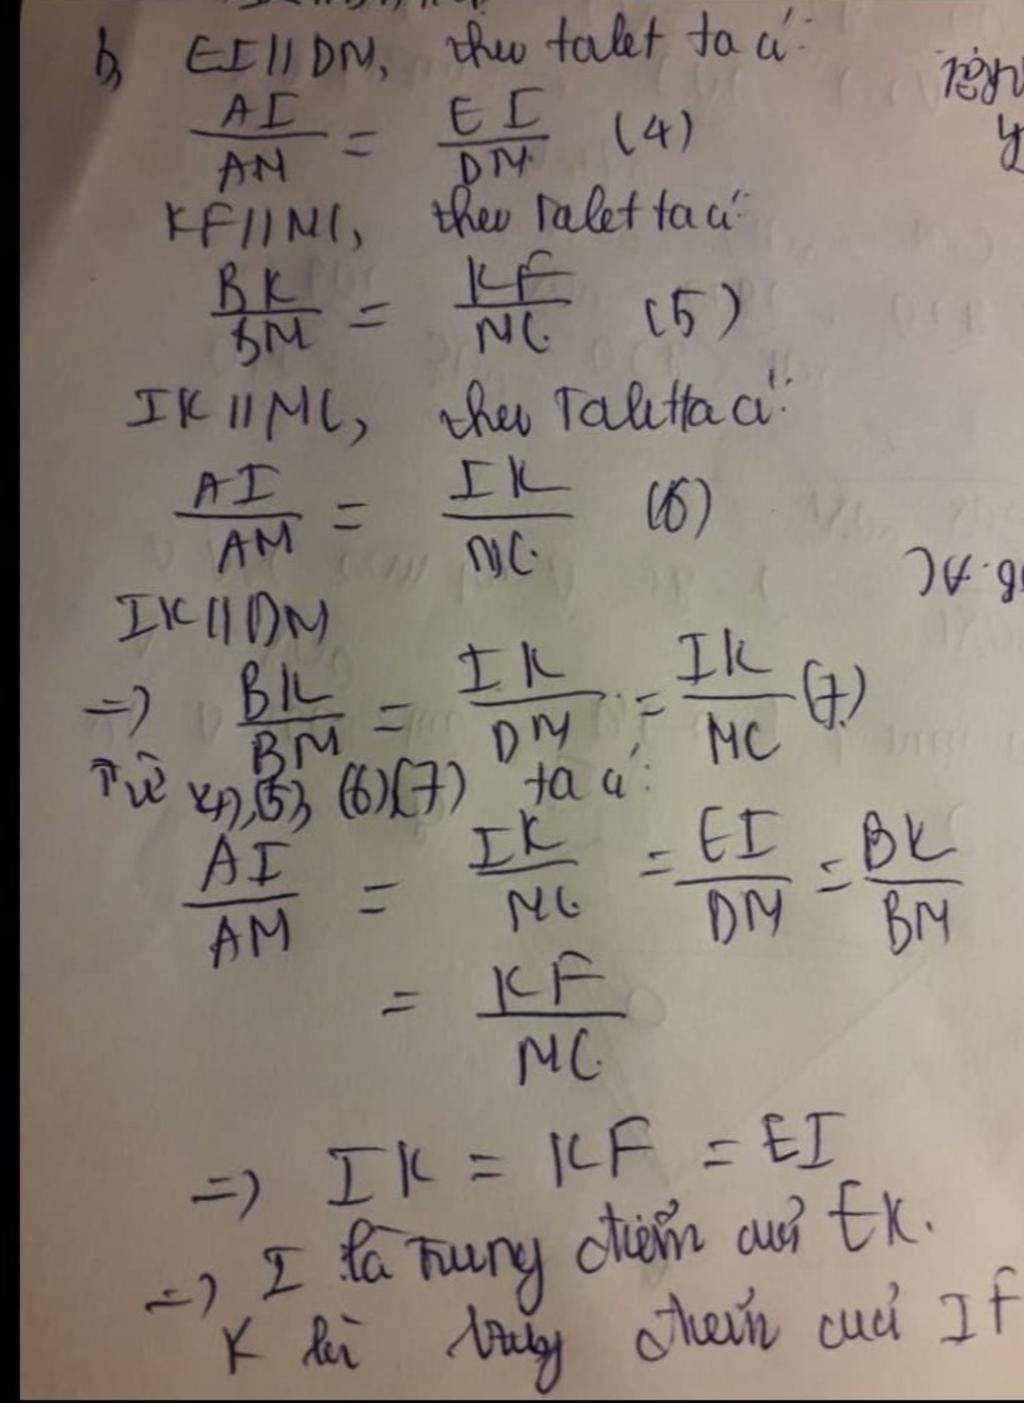 b, EI // DM, theo talet ta có:
AI/AM = EI/DM (4)
KF // MC, theo Talet ta có:
BK/BM = KF/MC (5)
IK // MC, theo Talet ta có:
AI/AM = IK/MC (6)
IK // DM
=> BK/BM = IK/DM = IK/MC (7)
Từ (4), (5), (6) (7) ta có:
AI/AM = IK/MC = EI/DM = BK/BM
= KF/MC
=> IK = KF = EI
=> I là trung điểm của EK.
K là trung điểm của IF